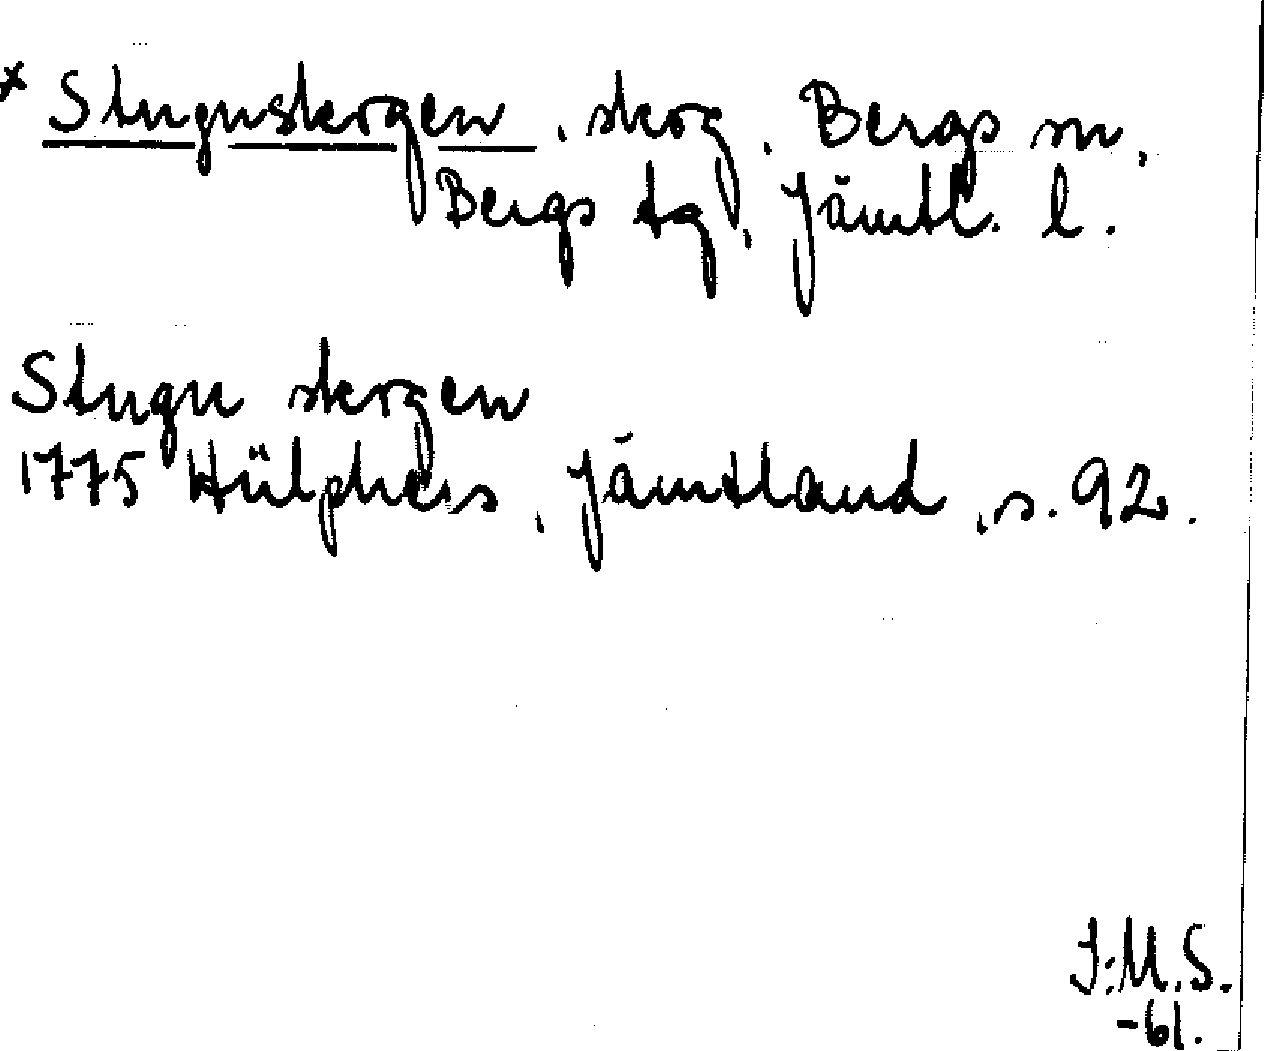 x Stuguskogen, skog, Bergs sn,
Bergs tg, Jämtl. l.
Stugu skogen
1775 Hülphers, Jämtland, s. 92.
I:M.S.
-61.